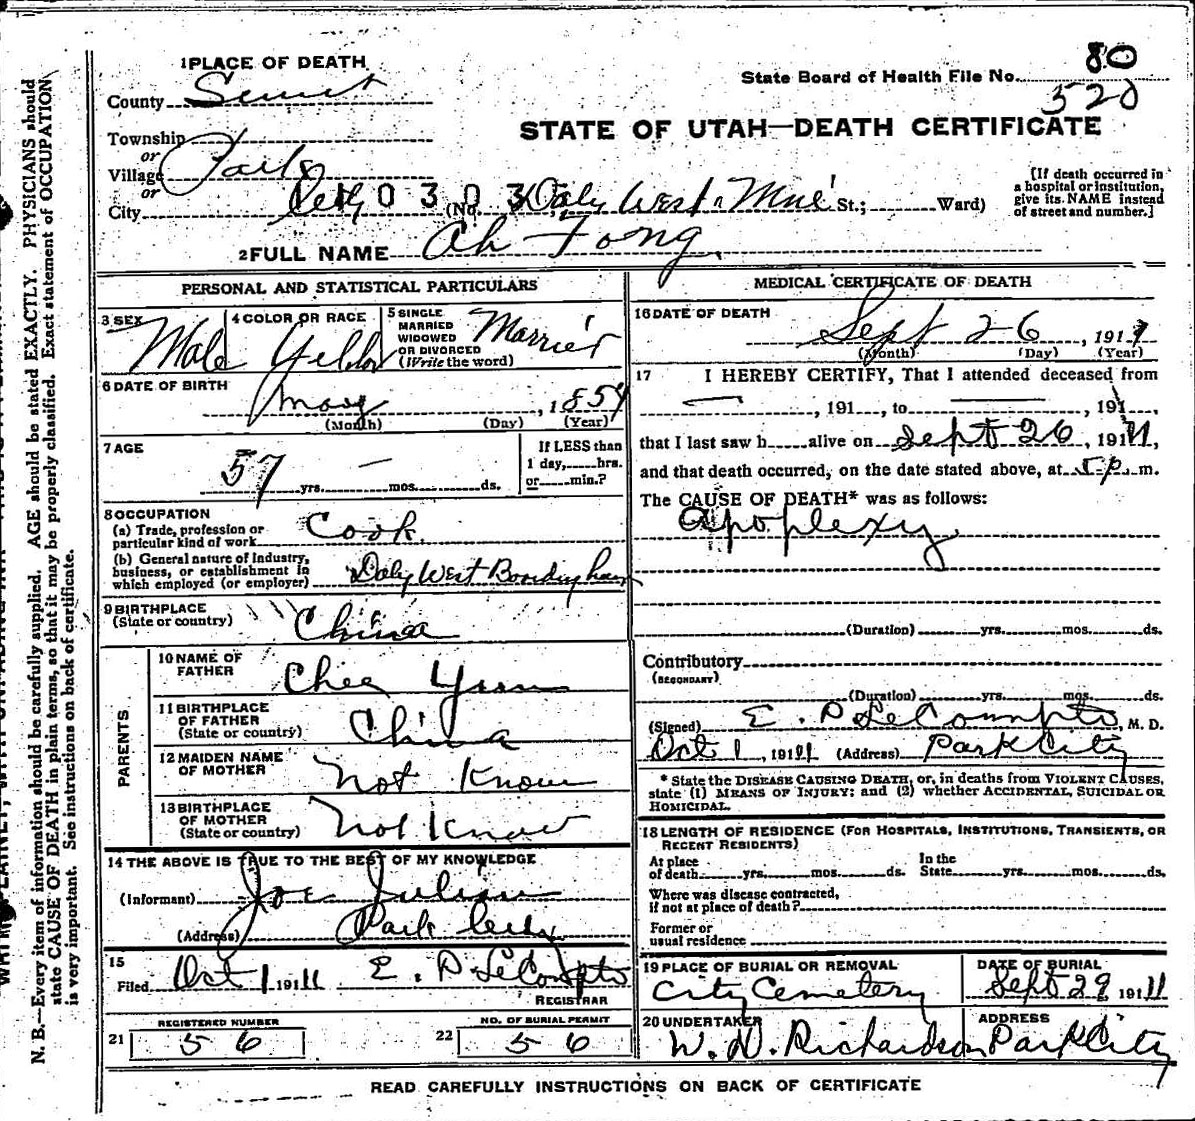 1 PLACE OF DEATH
County Summit
Township
or
Village Park
or
City City
10303
(No. Daly West Mine St.; Ward)
State Board of Health File No. 80
520
STATE OF UTAH—DEATH CERTIFICATE
[If death occurred in
a hospital or institution,
give its NAME instead
of street and number.]
2 FULL NAME Ah Fong
PERSONAL AND STATISTICAL PARTICULARS
3 SEX Male
4 COLOR OR RACE Yellow
5 SINGLE
MARRIED
WIDOWED
OR DIVORCED
(Write the word) Married
6 DATE OF BIRTH
May , 1854
(Month) (Day) (Year)
7 AGE
57 yrs. — mos. ds.
If LESS than
1 day, hrs.
or min.?
8 OCCUPATION
(a) Trade, profession or
particular kind of work Cook
(b) General nature of Industry,
business, or establishment in
which employed (or employer) Daly West Boarding house
9 BIRTHPLACE
(State or country) China
PARENTS
10 NAME OF
FATHER Chee Yuen
11 BIRTHPLACE
OF FATHER
(State or country) China
12 MAIDEN NAME
OF MOTHER Not Know
13 BIRTHPLACE
OF MOTHER
(State or country) Not Know
14 THE ABOVE IS TRUE TO THE BEST OF MY KNOWLEDGE
(Informant) Joe Julian
(Address) Park City
15
Filed Oct 1 1911 E. P. LeCompte
REGISTRAR
21 REGISTERED NUMBER
56
22 NO. OF BURIAL PERMIT
56
MEDICAL CERTIFICATE OF DEATH
16 DATE OF DEATH
Sept 26 , 1911
(Month) (Day) (Year)
17 I HEREBY CERTIFY, That I attended deceased from
— , 191 , to — , 191 ,
that I last saw h alive on Sept 26 , 1911,
and that death occurred, on the date stated above, at 5 p. m.
The CAUSE OF DEATH* was as follows:
Apoplexy
(Duration) yrs. mos. ds.
Contributory
(SECONDARY)
(Duration) yrs. mos. ds.
(Signed) E. P. LeCompte, M. D.
Oct 1 , 1911 (Address) Park City
* State the DISEASE CAUSING DEATH, or, in deaths from VIOLENT CAUSES,
state (1) MEANS OF INJURY; and (2) whether ACCIDENTAL, SUICIDAL OR
HOMICIDAL.
18 LENGTH OF RESIDENCE (FOR HOSPITALS, INSTITUTIONS, TRANSIENTS, OR
RECENT RESIDENTS)
At place
of death yrs. mos. ds.
In the
State yrs. mos. ds.
Where was disease contracted,
if not at place of death?
Former or
usual residence
19 PLACE OF BURIAL OR REMOVAL
City Cemetery
DATE OF BURIAL
Sept 29 1911
20 UNDERTAKER
W. D. Richardson
ADDRESS
Park City
READ CAREFULLY INSTRUCTIONS ON BACK OF CERTIFICATE
N. B.—Every item of information should be carefully supplied. AGE should be stated EXACTLY. PHYSICIANS should
state CAUSE OF DEATH in plain terms, so that it may be properly classified. Exact statement of OCCUPATION
is very important. See instructions on back of certificate.